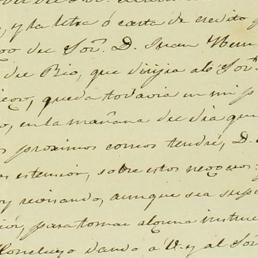 , y la letra ó carta de credito
de Sor. D. Juan
del Rio, que dirijia al Sor.
queda todavia en mi p
o, en la mañana del dia que
proximo correo tendré, D.
s extension, sobre estos negocios
y revisando, aunque sea supe
ción, para tomar alguna instruc
Concluyo dando a V. y al Sor